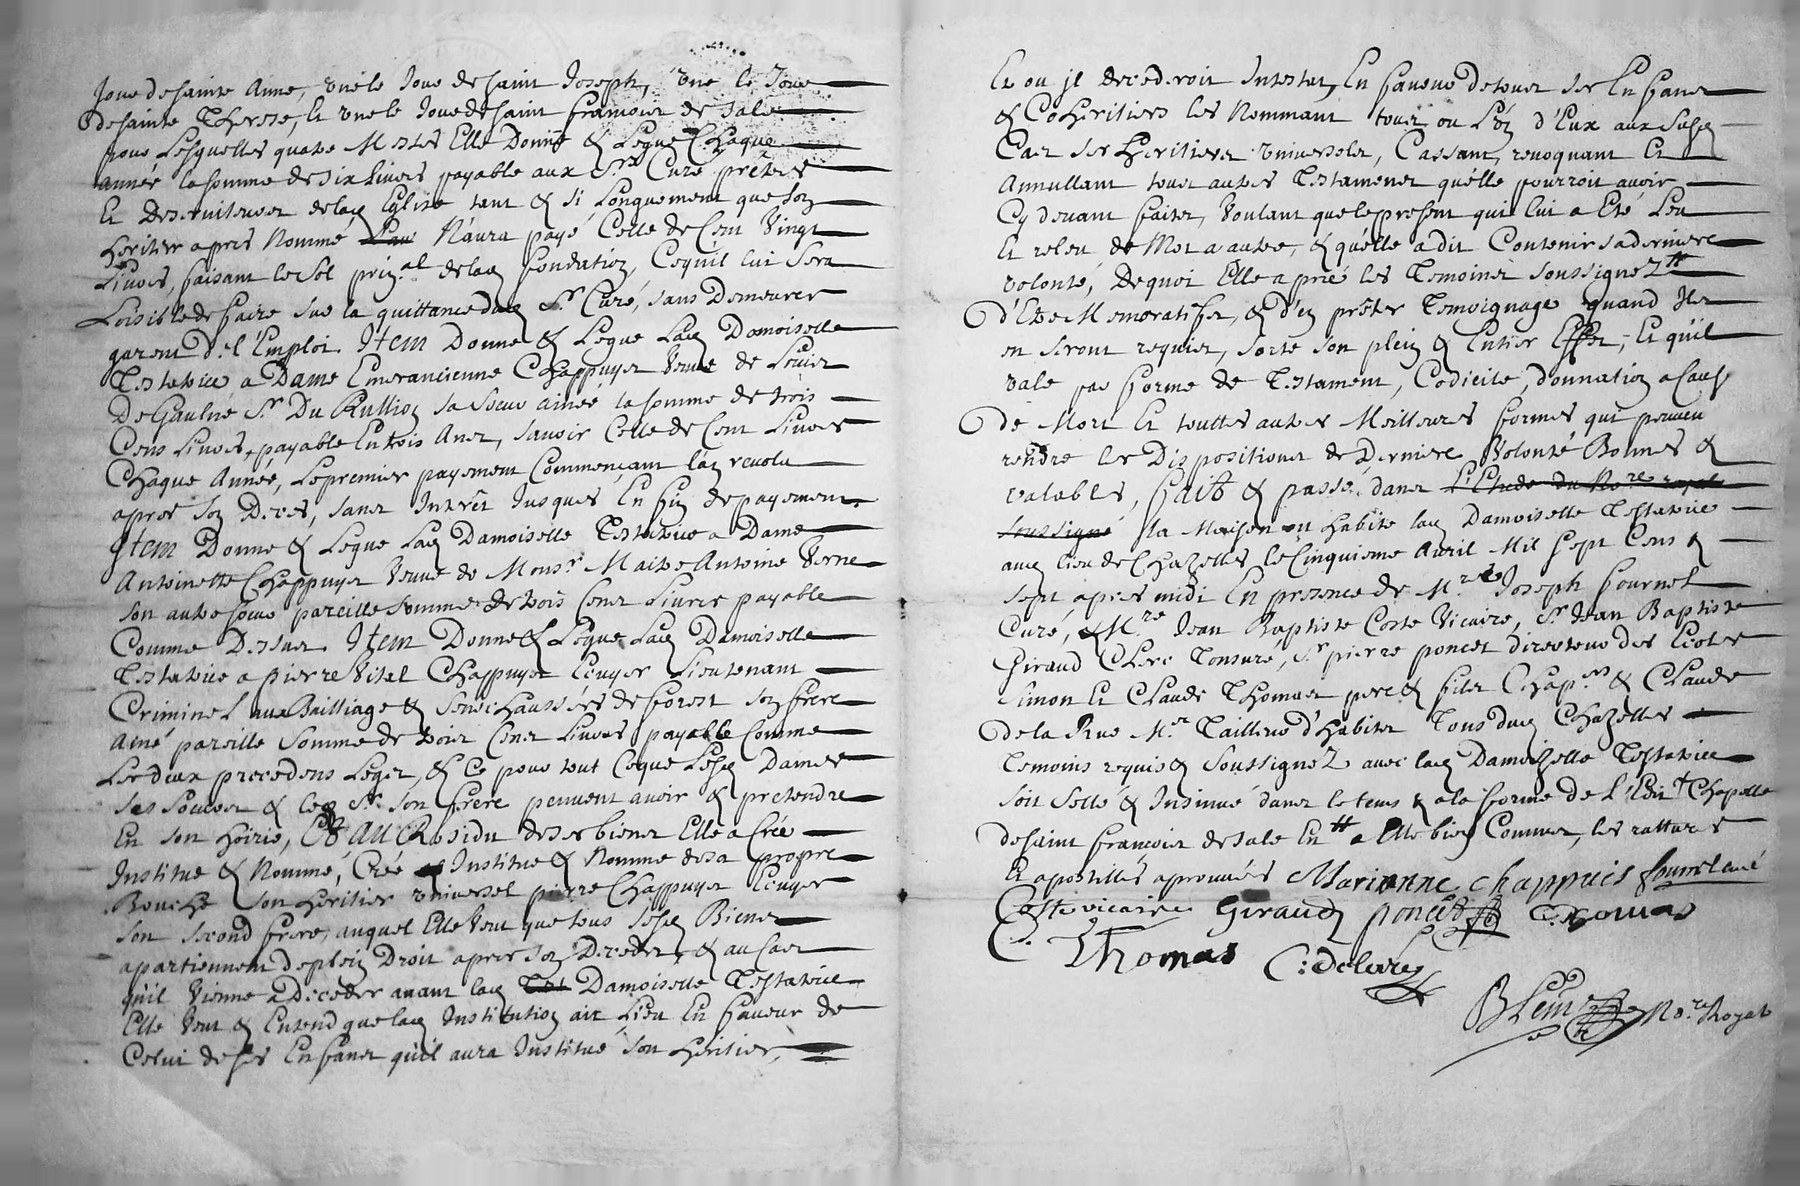 Jour de sainte Anne, une le Jour de saint Joseph, une le Jour
de sainte Therese, Et une le Jour de saint François de Sale
pour Lesquelles quatre Messes Elle Donne & Legue Chaque
année la somme de six Livres payable aux Srs Curé prêtres
Et Desserviteurs de lad Eglise tant & si Longuement que son
Heritier apres Nommé N'aura payé Celle de Cent Vingt
Livres, faisant le Sol prinal de lad fondation, Ce qu'il lui Sera
Loisible de faire sur la quittance dud Sr Curé, sans Demeurer
garent de l'Emploi. Item Donne & Legue Lad Damoiselle
Testatrice a Dame Emerancienne Chappuys Veuve de Louis
De Gaulne Sr Du Rullion sa Soeur ainée la somme de trois
Cens Livres, payable En trois Ans, savoir Celle de Cent Livres
Chaque Année, Le premier payement Commençant l'an revolu
apres son Deces, sans Interêt Jusques En fin de payement.
Item Donne & Legue Lad Damoiselle Testatrice a Dame
Antoinette Chappuys Veuve de Monsr Maitre Antoine Verne
son autre soeur pareille somme de trois Cens Livres payable
Comme Dessus. Item Donne & Legue Lad Damoiselle
Testatrice a pierre Vital Chappuys Ecuyer Lieutenant
Criminel aux Bailliage & Senechaussées de forest son frere
ainé pareille somme de trois Cens Livres payable Comme
Les deux precedens Legs, & Ce pour tout Ceque Lesd Dames
ses soeurs & led Sr son frere peuvent avoir & pretendre
En son Hoirie, Et Au Residu de ses biens Elle a Crée
Institue & Nommé, Crée Institue & Nomme de sa propre
Bouche son Heritier universel pierre Chappuys Ecuyer
son second frere, auquel Elle Veut que tous sesd Biens
apartiennent de plein Droit apres son Deceds, & au Cas
qu'il Vienne a Deceder avant lad Damoiselle Testatrice
Elle Veut & Entend que lad Institution ait Lieu En faveur de
Celui de ses Enfans qu'il aura Institué son Heritier,
Et ou il decederoit Intestat, En faveur de tous ses Enfans
& CoHeritiers les Nommant tous ou L'un d'Eux aux susd
Cas ses Heritiers universels, Cassant, revoquant Et
Annullant tous autres Testamens qu'elle pourroit avoir
Cy devant faits, Voulant que le present qui lui a Eté Leu
Et releu de Mot a autre, & qu'elle a dit Contenir sa derniere
volonté, De quoi Elle a prié les Temoins soussignez
d'Etre Memoratifs, & d'en prêter Temoignage quand Ils
en seront requis, sorte son plein & Entier Effet, Et qu'il
vale par forme de Testament, Codicile, donnation a Cause
de Mort Et touttes autres Meilleures formes qui peuvent
rendre les Dispositions de Derniere Volonté Bonnes &
valables, fait & passé dans L'Etude du Nore royal
soussigné la Maison ou Habite lad Damoiselle Testatrice
aud Lieu de Chazelles le Cinquieme Avril Mil Sept Cens &
sept apres midi En presence de Mre Joseph fournel
Curé, & Mre Jean Baptiste Coste Vicaire, Sr Jean Baptiste
Giraud Clerc Tonsuré, Sr pierre poncet directeur des Ecoles
Simon Et Claude Thomas pere & fils Chaprs & Claude
De la Rue Mr Tailleur d'Habits Tous dud Chazelles
Temoins requis & Soussignez avec lad Damoiselle Testatrice
soit Scellé & Insinué dans le tems & a la forme de l'Edit Chapelle
de saint françois de sale En a Elle bien Connus, les rattures
Et apostilles aprouvées Marianne chappuis fournel curé
Coste vicaire Giraud poncet C. Thomas
S. Thomas C: Delarue
Nore Royal